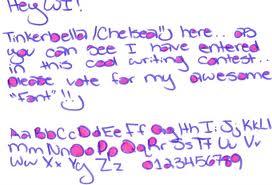 Hey WI!
Tinkerbella/Chelsea :) here.. as
you can see I have entered
in this cool writing contest..
please vote for my awesome
"font" :) !
Aa Bb Cc Dd Ee Ff Gg Hh Ii Jj Kk Ll
Mm Nn Oo Pp Qq Rr Ss Tt Uu Vv
Ww Xx Yy Zz 0123456789